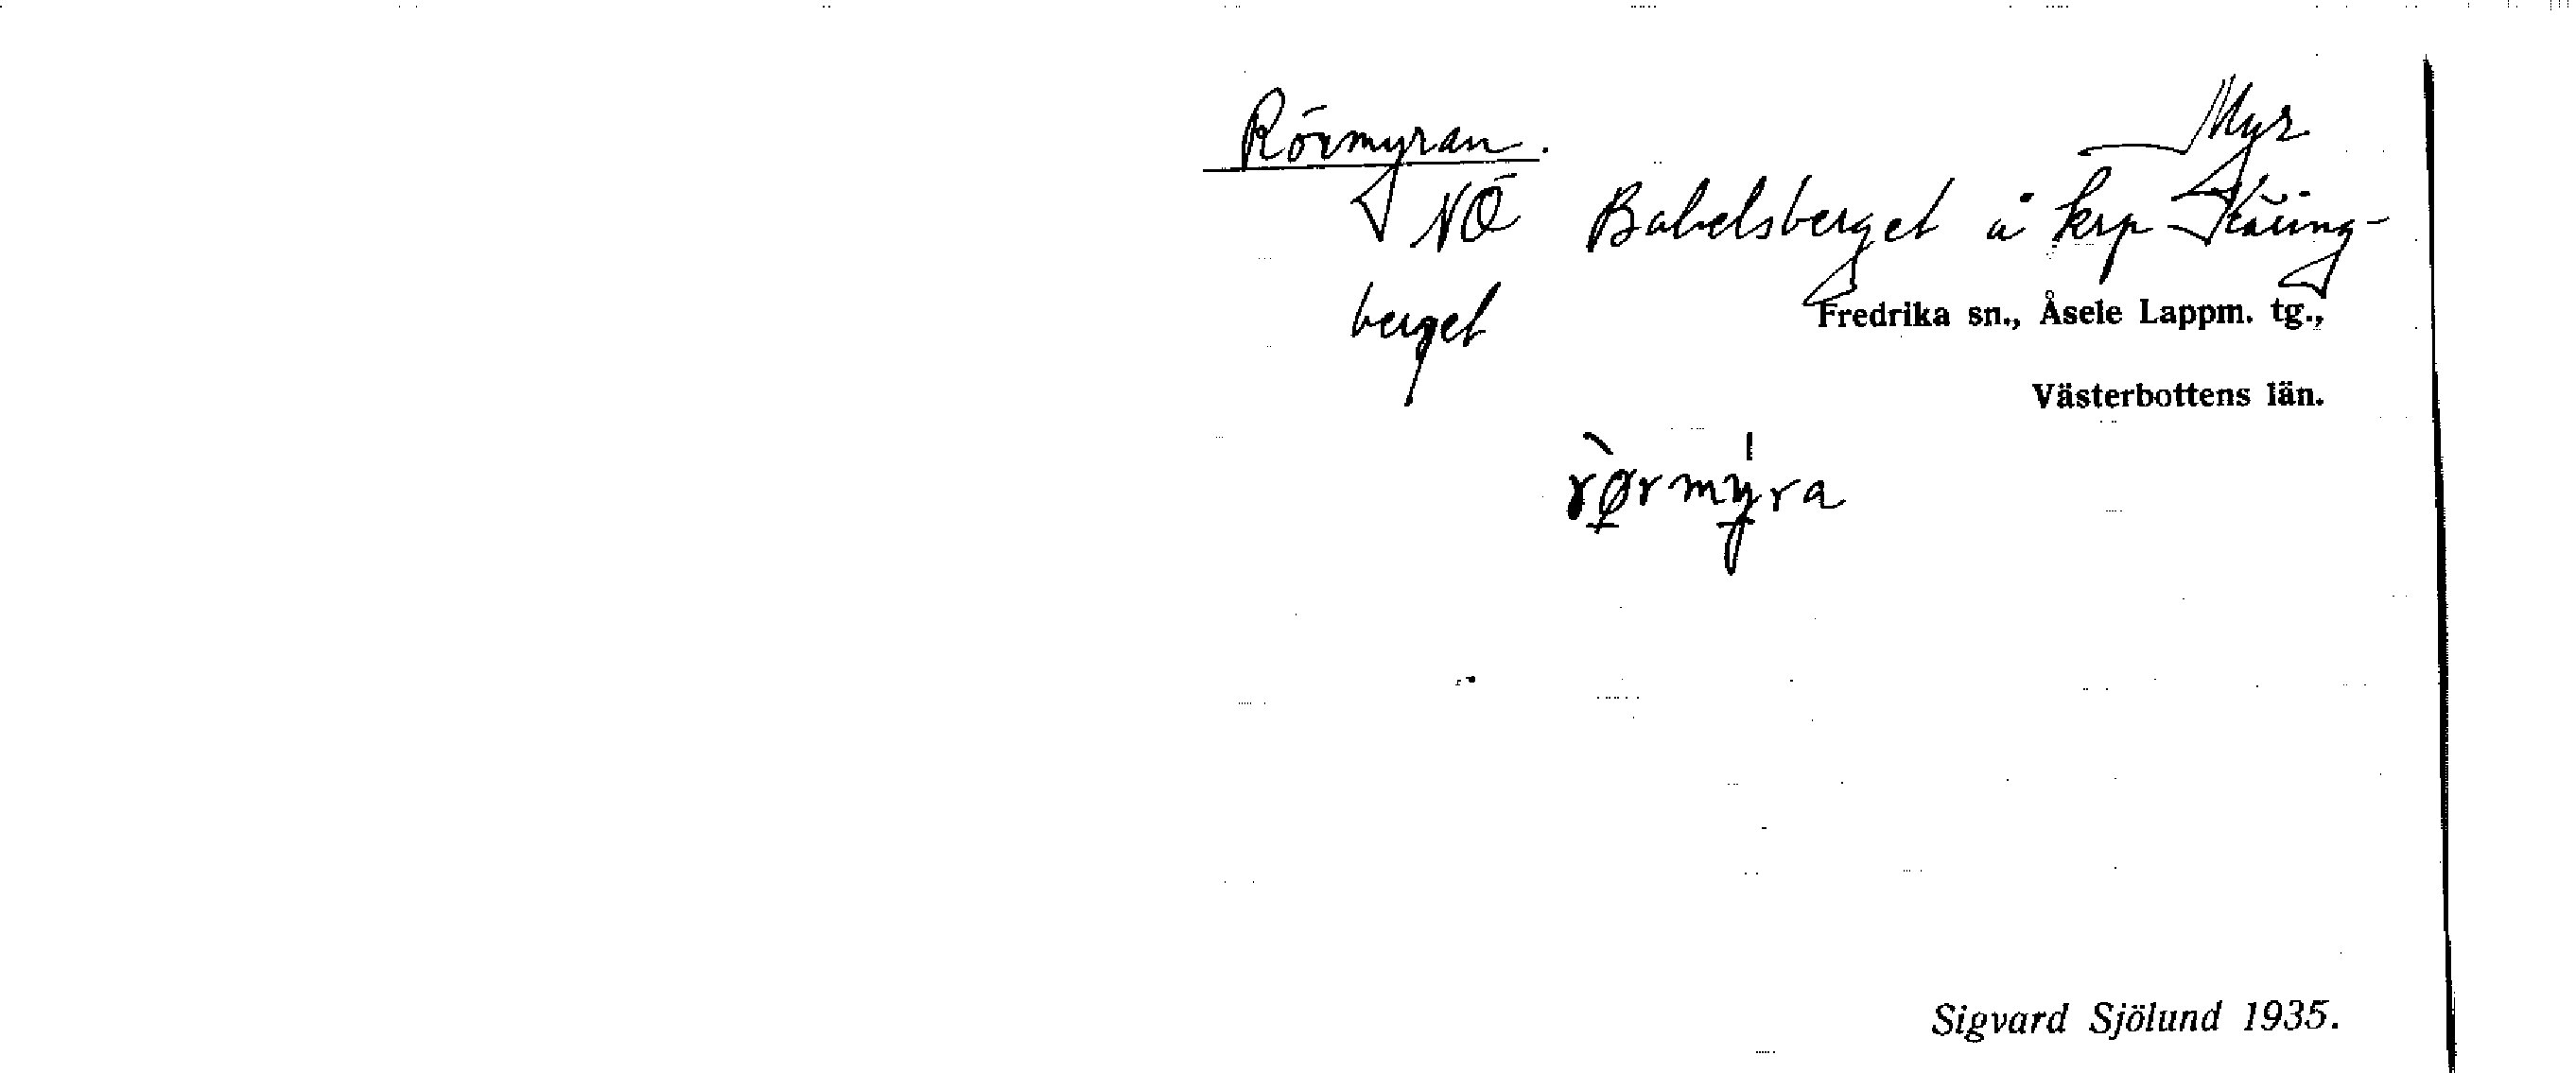 Rörmyran. Myr
NÖ Babelsberget å krp Käring-
berget
Fredrika sn., Åsele Lappm. tg.,
Västerbottens län.
rø̀rmy̍ra
Sigvard Sjölund 1935.